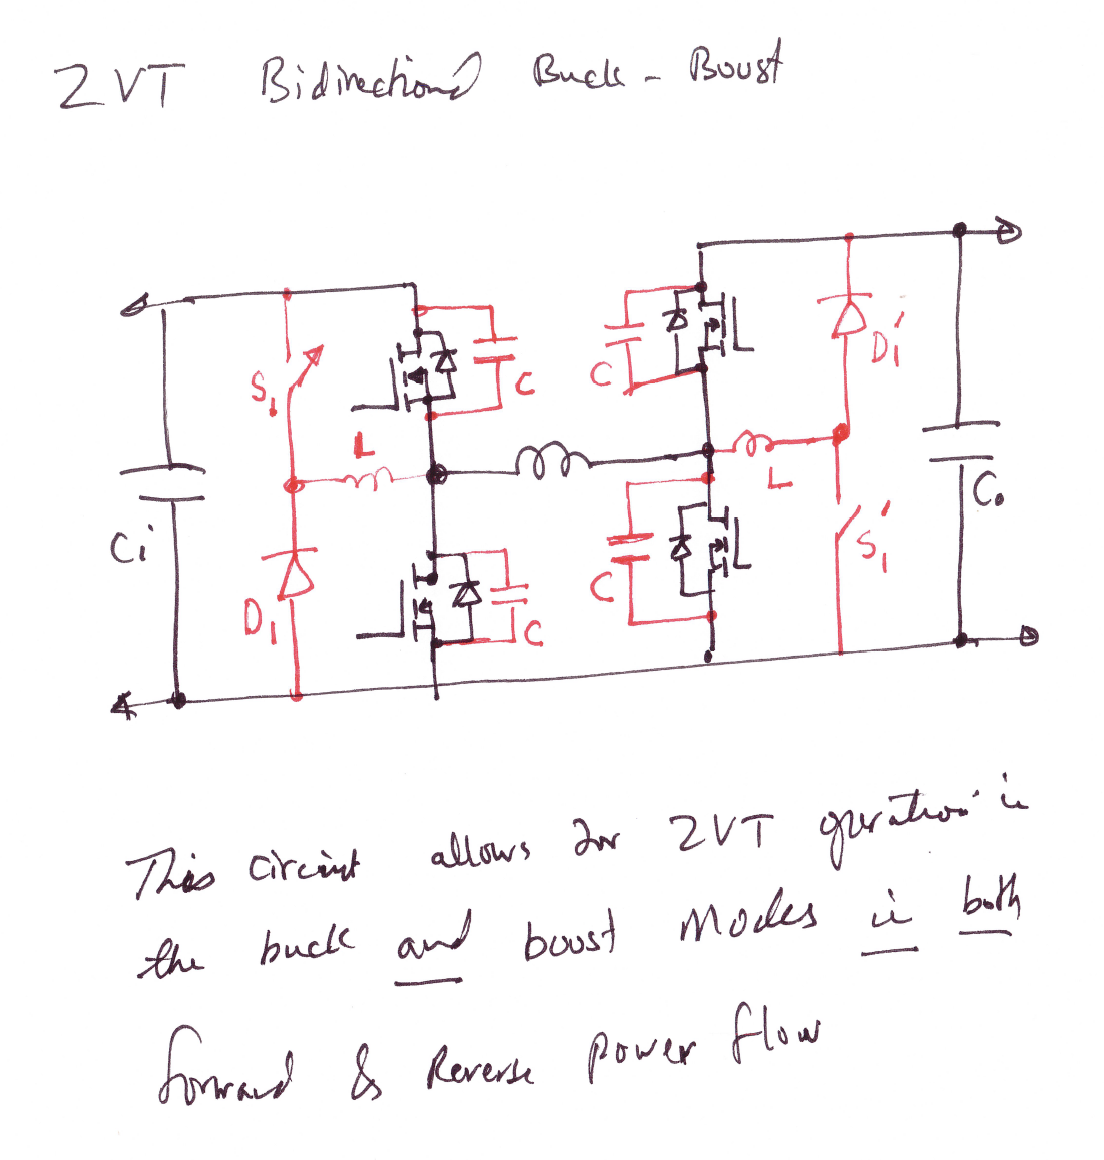 ZVT Bidirectional Buck - Boost
S1
L
C
C
D1'
Ci
L
Co
D1
C
C
S1'
This circuit allows for ZVT operation in
the buck and boost modes in both
forward & Reverse power flow